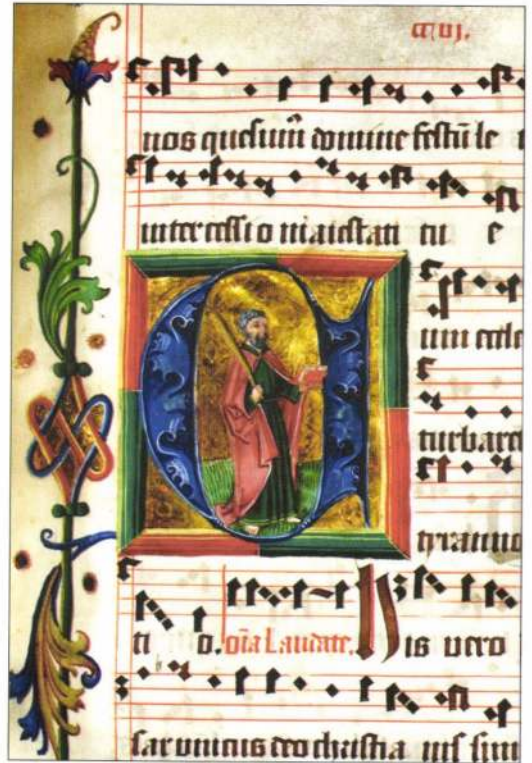 nos quesum̄ domine festū le
intercessio maiestati tu e
um eccle
turbare
tyranno
ti o. oīa Laudate. His vero
sar unicus deo christia nis sim